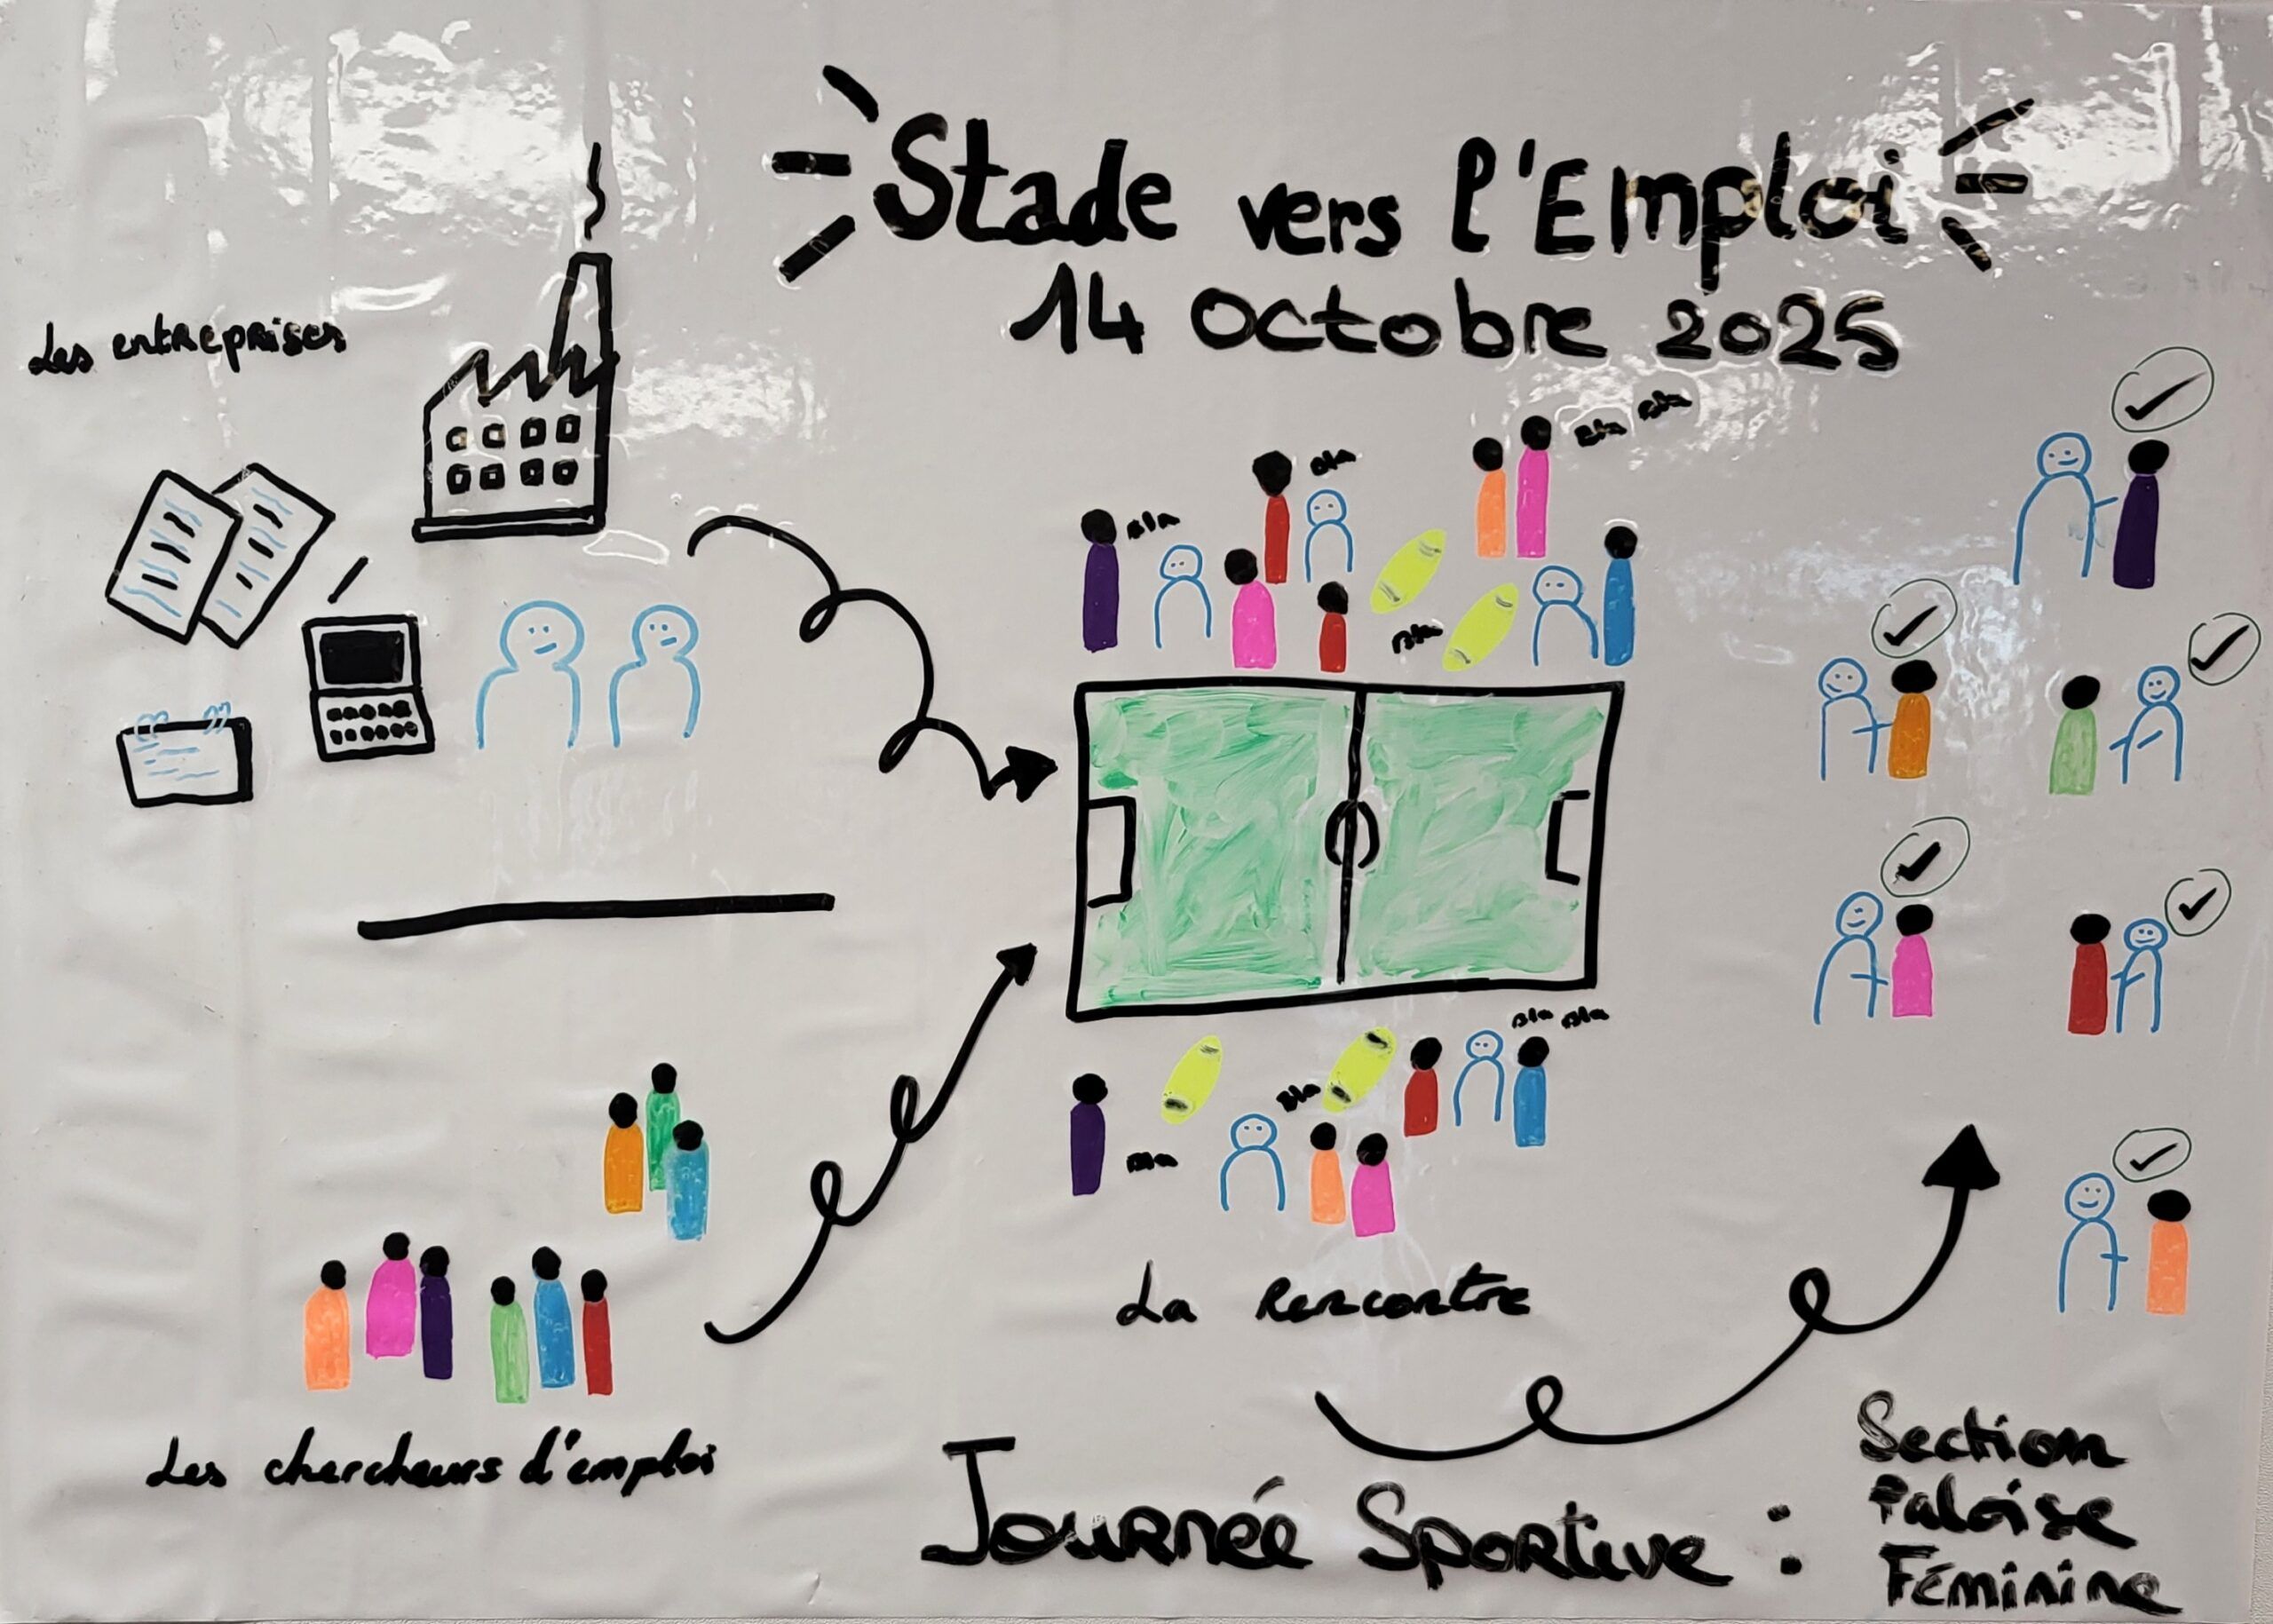 Stade vers l'Emploi
14 Octobre 2025
Les entreprises
Bla Bla
Bla
Bla
Bla
Bla Bla
Bla
Bla
La Rencontre
Les chercheurs d'emploi
Journée Sportive :
Section
Paloise
Féminine